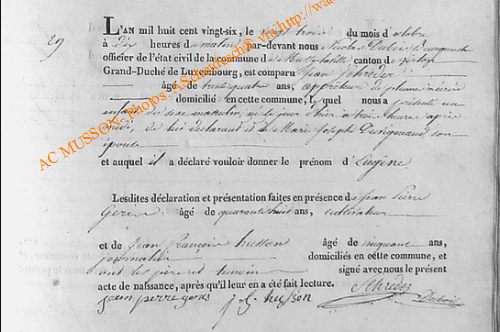 29
L'AN mil huit cent vingt-six, le vingt trois du mois d'octobre
à dix heures du matin, par-devant nous Nicolas Dubois Bourgmestre
officier de l'état civil de la commune de canton de Virton
Grand-Duché de Luxembourg, est comparu Jean Schreder
âgé de trente quatre ans,
domicilié en cette commune, lequel nous a présenté un
enfant du sexe masculin, né le jour d'hier à trois heures après
midi, de lui déclarant et de Marie Joseph son
épouse
et auquel il a déclaré vouloir donner le prénom d'Eugène
Lesdites déclaration et présentation faites en présence de Jean Pierre
âgé de quarante huit ans, cultivateur
et de Jean François husson âgé de cinquante ans,
journalier domiciliés en cette commune, et
ont les père et témoins signé avec nous le présent
acte de naissance, après qu'il leur en a été fait lecture.
jean pierre
j f husson
Schreder
Dubois
AC MUSSON - Photos